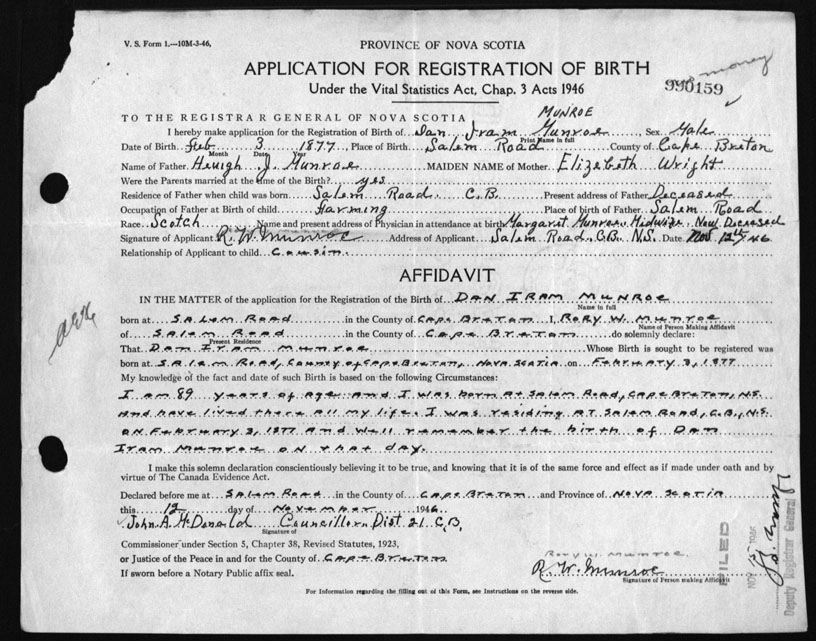 V. S. Form 1.—10M-3-46.
PROVINCE OF NOVA SCOTIA
APPLICATION FOR REGISTRATION OF BIRTH
Under the Vital Statistics Act, Chap. 3 Acts 1946
no money
990159
TO THE REGISTRAR GENERAL OF NOVA SCOTIA
MUNROE
I hereby make application for the Registration of Birth of Dan Iram Munroe Sex Male
Print Name in full
Date of Birth Feb 3 1877, Place of Birth Salem Road County of Cape Breton
Month Date Year
Name of Father Heugh J. Munroe MAIDEN NAME of Mother Elizebeth Wright
Were the Parents married at the time of the Birth? yes
Residence of Father when child was born Salem Road C.B. Present address of Father Deceased
Occupation of Father at Birth of child Farming Place of birth of Father Salem Road
Race Scotch Name and present address of Physician in attendance at birth Margaret Munroe, Midwife, Now Deceased
Signature of Applicant R. W. Munroe Address of Applicant Salem Road, C.B. N.S. Date Nov 12th 46
Relationship of Applicant to child Cousin.
AFFIDAVIT
IN THE MATTER of the application for the Registration of the Birth of DAN IRAM MUNROE
Name in full
born at SALEM ROAD in the County of CAPE BRETON I, RORY W. MUNROE
Name of Person Making Affidavit
of SALEM ROAD in the County of CAPE BRETON do solemnly declare:
Present Residence
That DAN IRAM MUNROE Whose Birth is sought to be registered was
born at SALEM ROAD, COUNTY OF CAPE BRETON, NOVA SCOTIA on FEBRUARY 3, 1877
My knowledge of the fact and date of such Birth is based on the following Circumstances:
I am 89 years of age and I was born at Salem Road, Cape Breton, N.S.
and have lived there all my life. I was residing at Salem Road, C.B., N.S.
on February 3, 1877 and well remember the birth of Dan
Iram Munroe on that day.
I make this solemn declaration conscientiously believing it to be true, and knowing that it is of the same force and effect as if made under oath and by
virtue of The Canada Evidence Act.
Declared before me at SALEM ROAD in the County of CAPE BRETON and Province of NOVA SCOTIA
this 12 day of NOVEMBER 1946.
John A. McDonald Councillor Dist 21 C.B.
Signature of
Commissioner under Section 5, Chapter 38, Revised Statutes, 1923,
or Justice of the Peace in and for the County of CAPE BRETON
If sworn before a Notary Public affix seal.
Rory W. Munroe.
R. W. Munroe
Signature of Person making Affidavit
For Information regarding the filling out of this Form, see Instructions on the reverse side.
FILED
NOV 15 1946
Deputy Registrar General